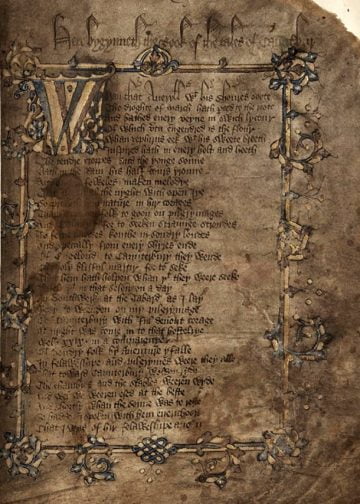 Here bygynneth the Book of the tales of Caunterbury
Whan that Aueryll wt his shoures soote
The droghte of March hath perced to the roote
And bathed euery veyne in swich lycour
Of which vertu engendred is the flour
Whan zephirus eek wt his sweete breeth
Inspired hath in euery holt and heeth
The tendre croppes and the yonge sonne
Hath in the Ram his half cours yronne
foweles maken melodye
al the nyght with open Iye
nature in hir corages
folk to goon on pilgrymages
for to seeken straunge strondes
To ferne halwes kouthe in sondry londes
And specially from euery shyres ende
Of Engelond to Caunterbury they wende
The holy blisful martir for to seke
That hem hath holpen whan þt they weere seeke
in that seson on a day
In Southwerk at the Tabard as I lay
Redy to weenden on my pilgrymage
To Caunterbury with ful deuout corage
At nyght was come in to that hostelrye
Wel xxix in a compaignye
Of sondry folk by auenture yfalle
In felaweshipe and pilgrymes weere they alle
That toward Caunterbury wolden ryde
The chambres and the stables weeren wyde
And wel we weeren esed at the beste
And shortly whan the sonne was to reste
So hadde I spoken with hem euerichoon
That I was of hir felaweshipe